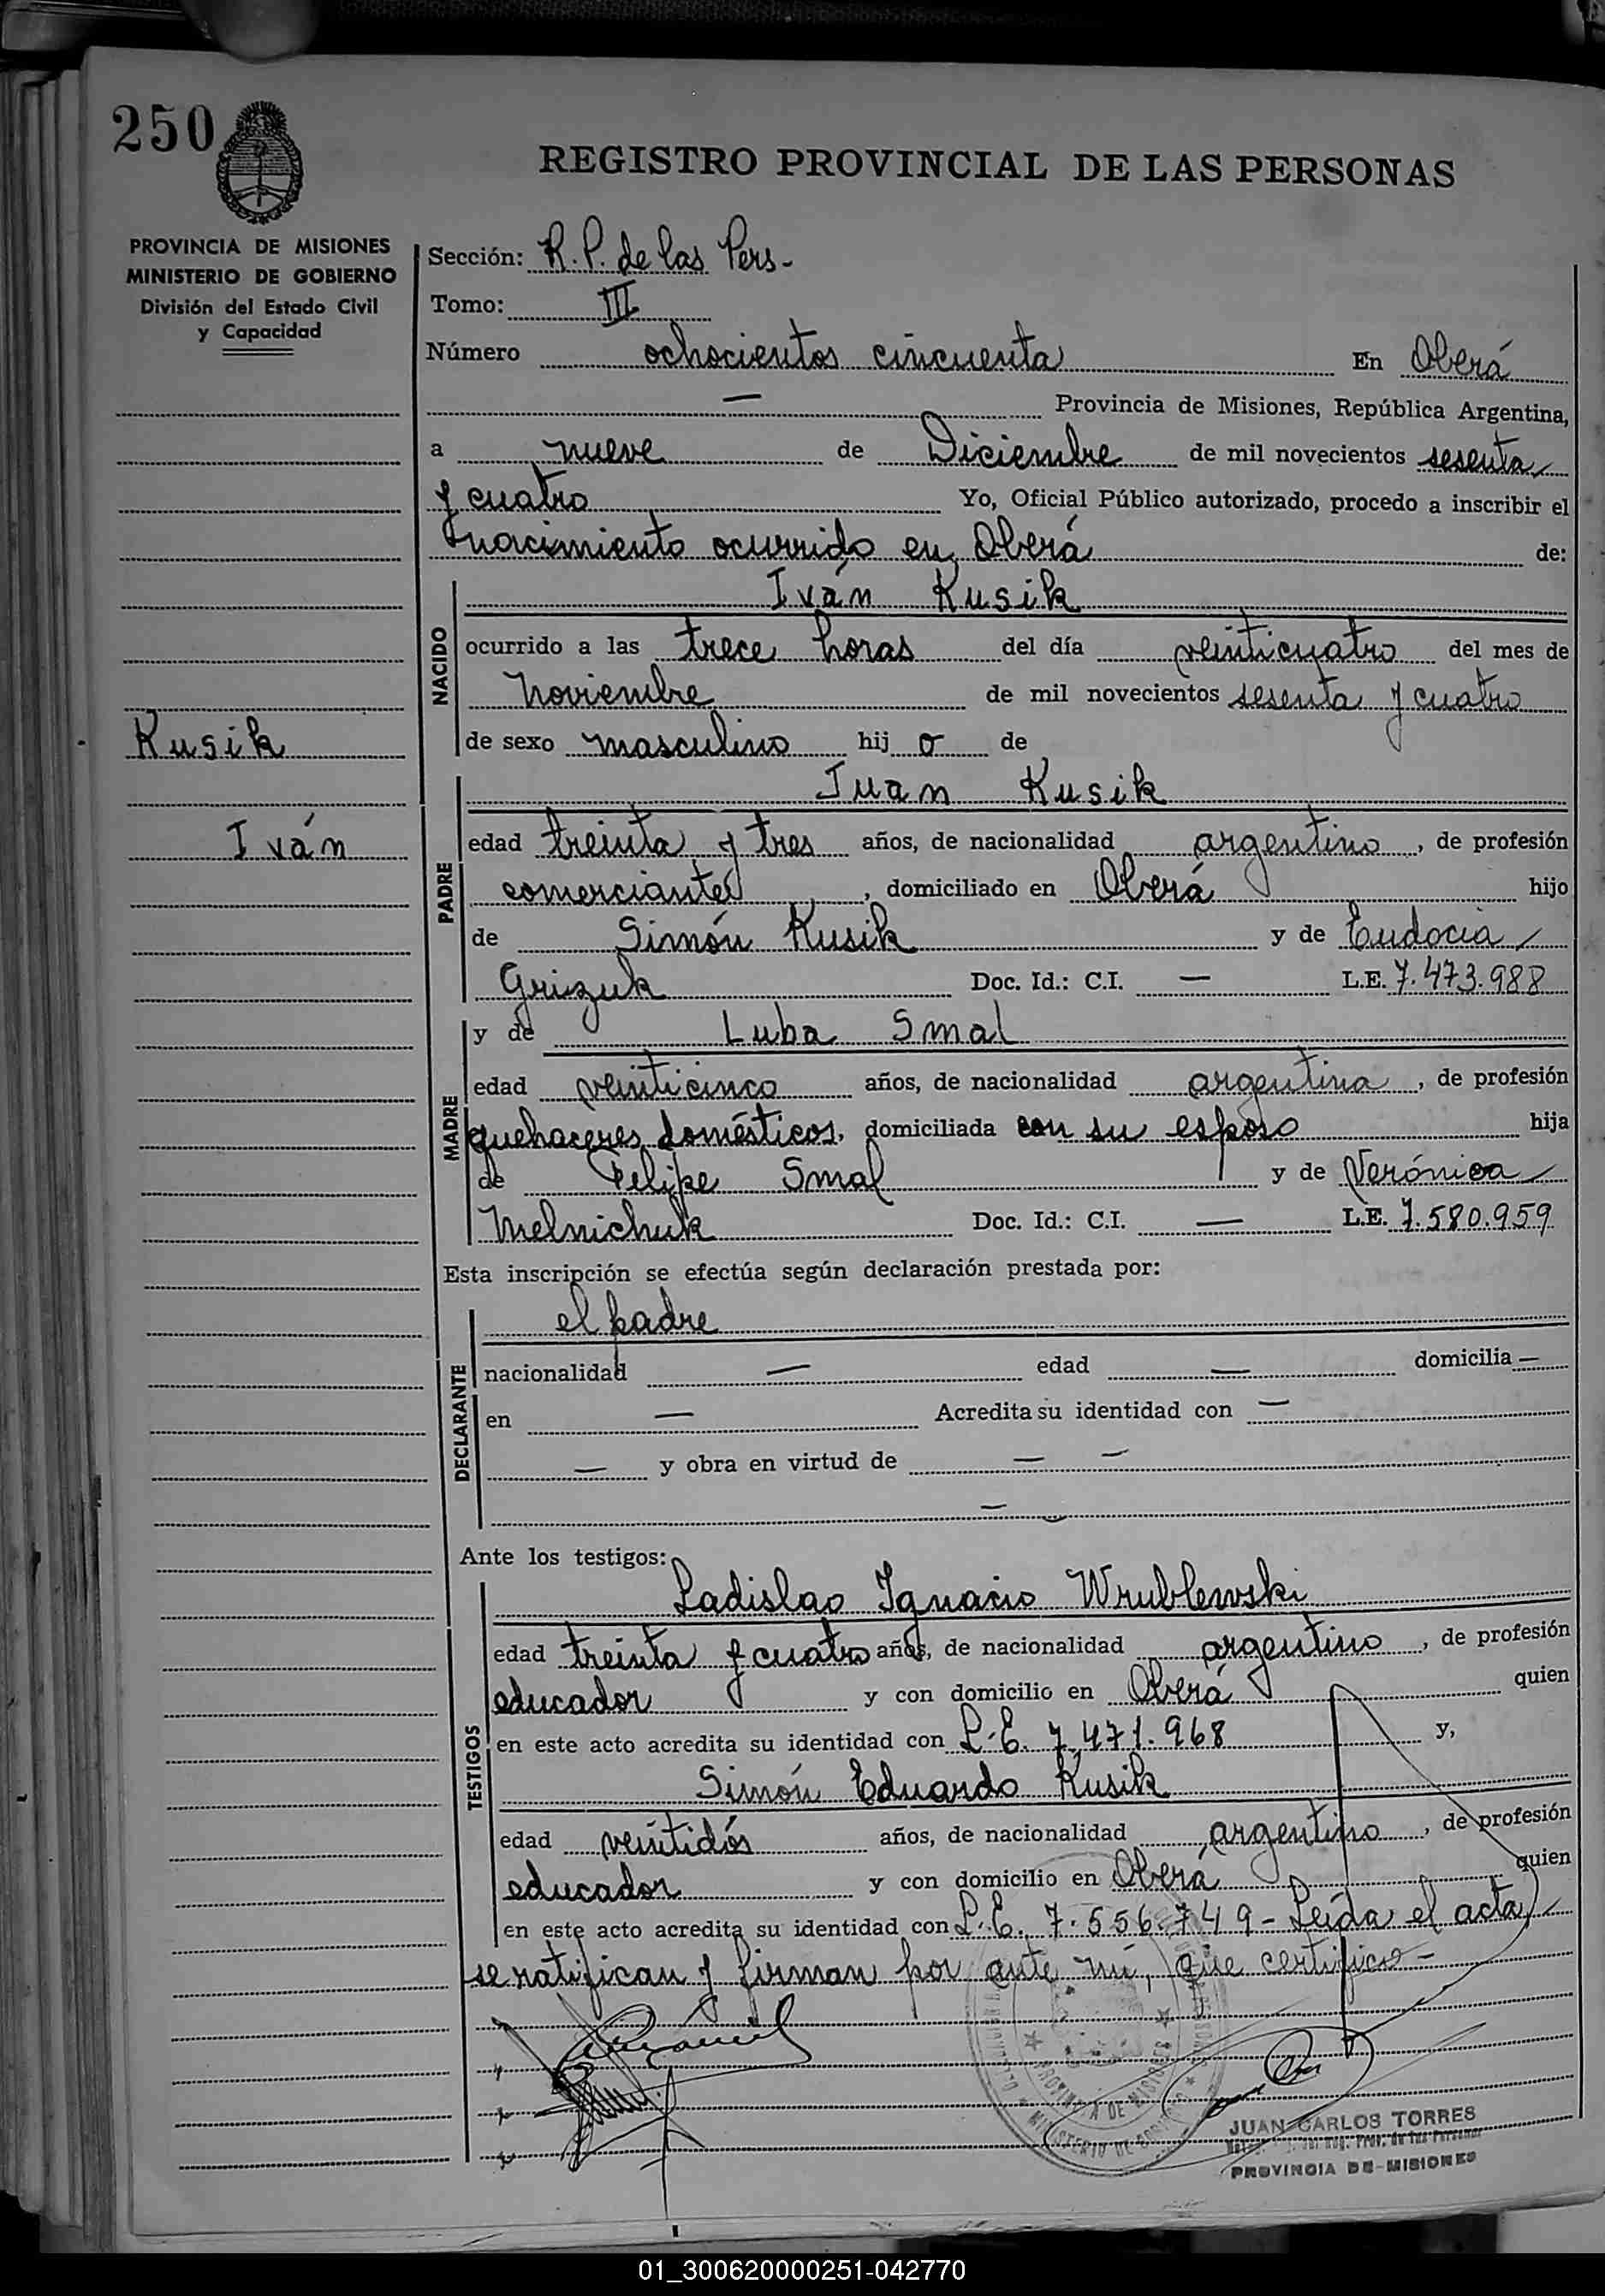 250
REGISTRO PROVINCIAL DE LAS PERSONAS
PROVINCIA DE MISIONES
MINISTERIO DE GOBIERNO
División del Estado Civil
y Capacidad
Sección: R.P. de las Pers-
Tomo: III
Número ochocientos cincuenta En Oberá
— Provincia de Misiones, República Argentina,
a nueve de Diciembre de mil novecientos sesenta
y cuatro Yo, Oficial Público autorizado, procedo a inscribir el
nacimiento ocurrido en Oberá de:
NACIDO
Iván Kusik
ocurrido a las trece horas del día veinticuatro del mes de
noviembre de mil novecientos sesenta y cuatro
de sexo masculino hij o de
Kusik
Iván
PADRE
Juan Kusik
edad treinta y tres años, de nacionalidad argentino, de profesión
comerciante, domiciliado en Oberá hijo
de Simón Kusik y de Eudocia
Grizuk Doc. Id.: C.I. — L.E. 7.473.988
MADRE
y de Luba Smal
edad veinticinco años, de nacionalidad argentina, de profesión
quehaceres domésticos, domiciliada con su esposo hija
de Felipe Smal y de Verónica
Melnichuk Doc. Id.: C.I. — L.E. 7.580.959
Esta inscripción se efectúa según declaración prestada por:
DECLARANTE
el padre
nacionalidad — edad — domicilia —
en — Acredita su identidad con —
— y obra en virtud de — —
—
Ante los testigos:
TESTIGOS
Ladislao Ignacio Wrublewski
edad treinta y cuatro años, de nacionalidad argentino, de profesión
educador y con domicilio en Oberá quien
en este acto acredita su identidad con L.E. 7.471.968 y,
Simón Eduardo Kusik
edad veintidós años, de nacionalidad argentino, de profesión
educador y con domicilio en Oberá quien
en este acto acredita su identidad con L.E. 7.556.749 - Leída el acta
se ratifican y firman por ante mí, que certifico -
PROVINCIA DE MISIONES
MINISTERIO DE GOBIERNO
JUAN CARLOS TORRES
Reg. Prov. de las Personas
PROVINCIA DE MISIONES
01_300620000251-042770